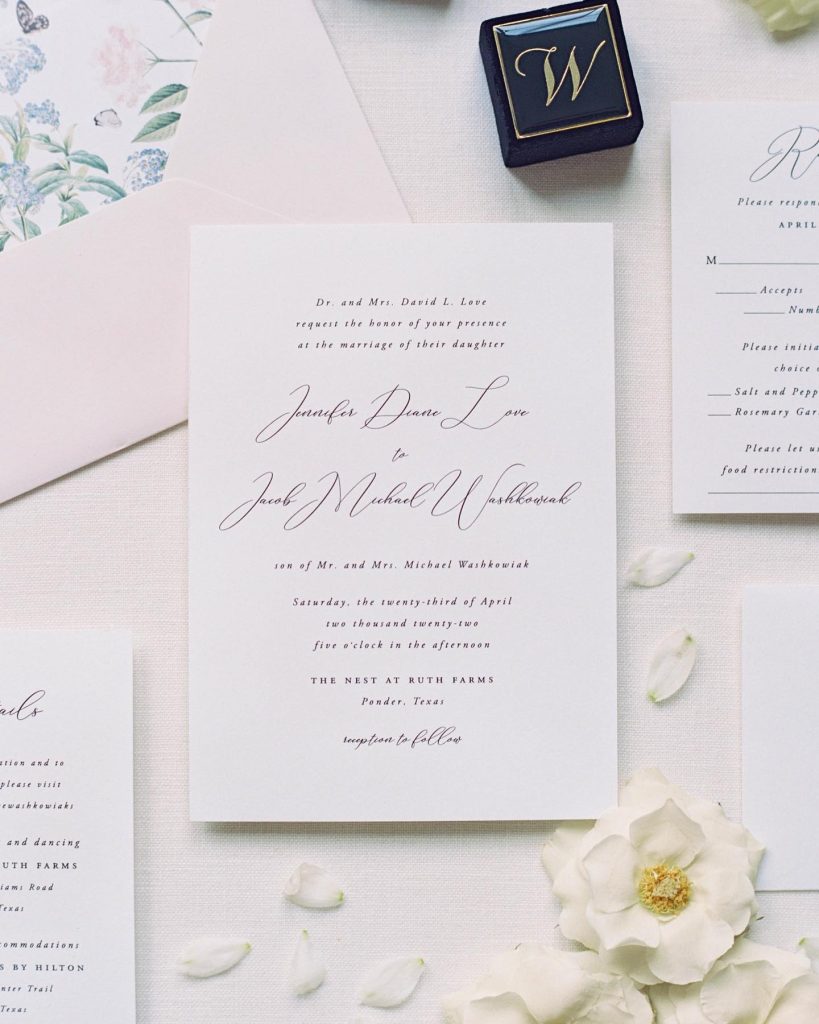 W
Dr. and Mrs. David L. Love
request the honor of your presence
at the marriage of their daughter
Jennifer Diane Love
to
Jacob Michael Washkowiak
son of Mr. and Mrs. Michael Washkowiak
Saturday, the twenty-third of April
two thousand twenty-two
five o'clock in the afternoon
THE NEST AT RUTH FARMS
Ponder, Texas
reception to follow
Please
APRIL
M
Accepts
Please
choice
Salt and
Rosemary
Please let
food
and to
please visit
and dancing
FARMS
Road
Texas
S BY HILTON
Trail
Texas